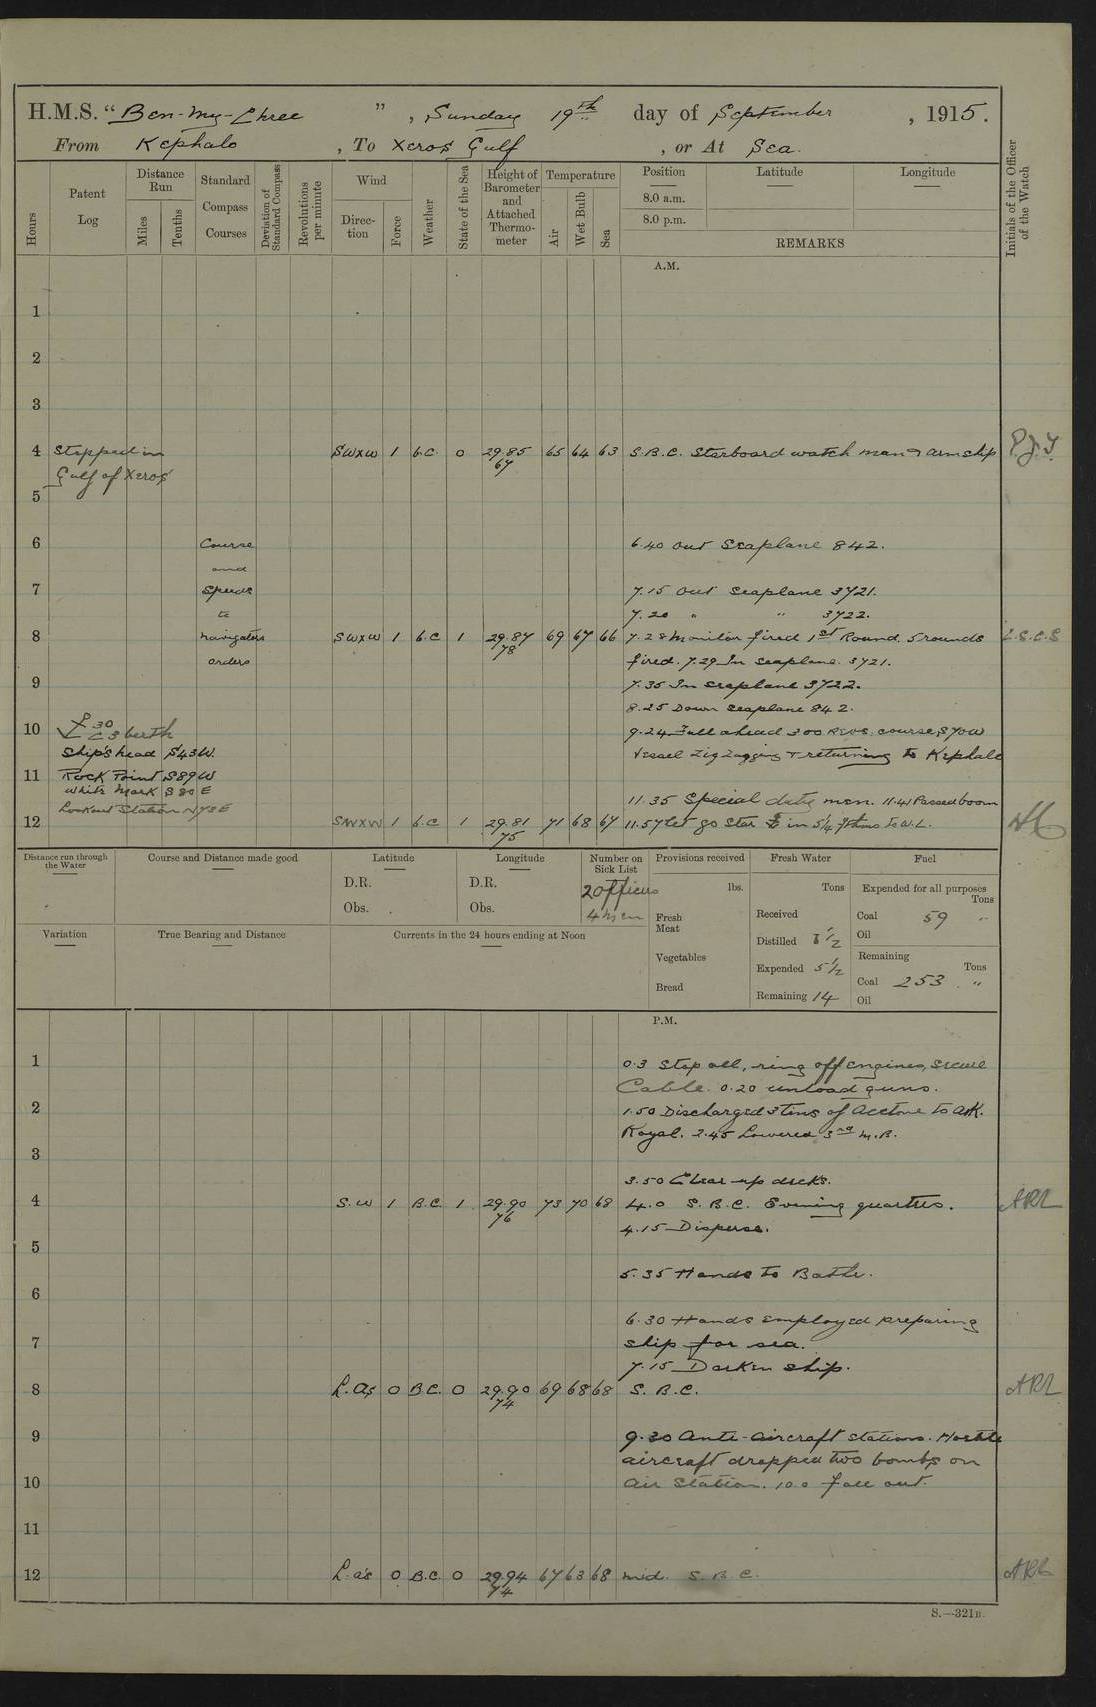 H.M.S. "Ben-my-Chree", Sunday 19th day of September, 1915.
From Kephalo, To Xeros Gulf, or At Sea.
Hours
Patent Log
Distance Run
Miles
Tenths
Standard Compass Courses
Deviation of Standard Compass
Revolutions per minute
Wind
Direction
Force
Weather
State of the Sea
Height of Barometer and Attached Thermo-meter
Temperature
Air
Wet Bulb
Sea
Position
Latitude
Longitude
8.0 a.m.
8.0 p.m.
REMARKS
Initials of the Officer of the Watch
A.M.
1
2
3
4 Stopped in SWxW 1 b.c. 0 29.85 65 64 63 S.B.C. Starboard watch man & arm ship P.J.T.
67
Gulf of Xeros
5
6 Course 6.40 Out Seaplane 842.
and
7 Speeds 7.15 Out Seaplane 3721.
to 7.20 " " 3722.
8 navigators SWxW 1 b.c 1 29.87 69 67 66 7.28 Monitor fired 1st Round. 5 rounds
78
orders fired. 7.29 In seaplane. 3721.
9 7.35 In seaplane 3722.
8.25 Down seaplane 842.
30
10 C3 berth 9.24 Full ahead 300 revs. course S70W
Ship's head S43W. Vessel Zig Zagging & returning to Kephalo
11 Rock Point S89W
White Mark S80E
11.35 Special duty men. 11.41 Passed boom
Lookout Station N73E
12 SWxW 1 b.c 1 29.81 71 68 67 11.57 let go Star in 5¼ fthms to W.L.
75
Distance run through the Water
Course and Distance made good
Latitude
D.R.
Obs.
Longitude
D.R.
Obs.
Number on Sick List
2 officers
4 men
Provisions received
lbs.
Fresh Meat
Vegetables
Bread
Fresh Water
Tons
Received
Distilled ½
Expended 5½
Remaining 14
Fuel
Expended for all purposes
Tons
Coal 59 "
Oil
Remaining
Tons
Coal 253 "
Oil
Variation
True Bearing and Distance
Currents in the 24 hours ending at Noon
P.M.
1 0.3 Stop all, ring off engines, secure
Cable. 0.20 unload guns.
2 1.50 Discharged 3 tins of Acetone to Ark
Royal. 2.45 Lowered 3rd M.B.
3
3.50 Clear up decks.
4 S.W 1 B.C. 1 29.90 73 70 68 4.0 S.B.C. Evening quarters. ARL
76
4.15 Disperse.
5
5.35 Hands to Bathe.
6
6.30 Hands employed preparing
7 ship for sea.
7.15 Darken ship.
8 L.As 0 B.C. 0 29.90 69 68 68 S.B.C. ARL
74
9 9.30 Anti-aircraft stations. Hostile
aircraft dropped two bombs on
10 Air Station. 10.0 Fall out.
11
12 L.as 0 B.C. 0 29.94 67 63 68 mid. S.B.C. ARL
74
S.—321B.